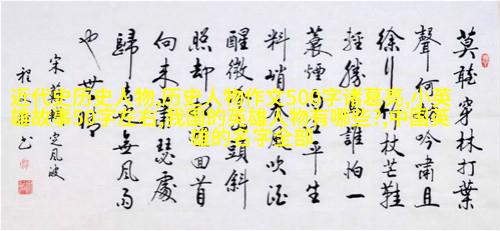 近代史历史人物,历史人物作文500字诸葛亮,小英
雄故事50字左右,我国的英雄人物有哪些?,中国英
雄的名字全部
莫聽穿林打葉
聲何妨吟嘯且
徐行竹杖芒鞋
輕勝馬誰怕一
蓑煙雨任平生
料峭春風吹酒
醒微冷山頭斜
照却相迎回首
向來蕭瑟處
歸去也無風雨
也無晴
宋蘇軾定風波